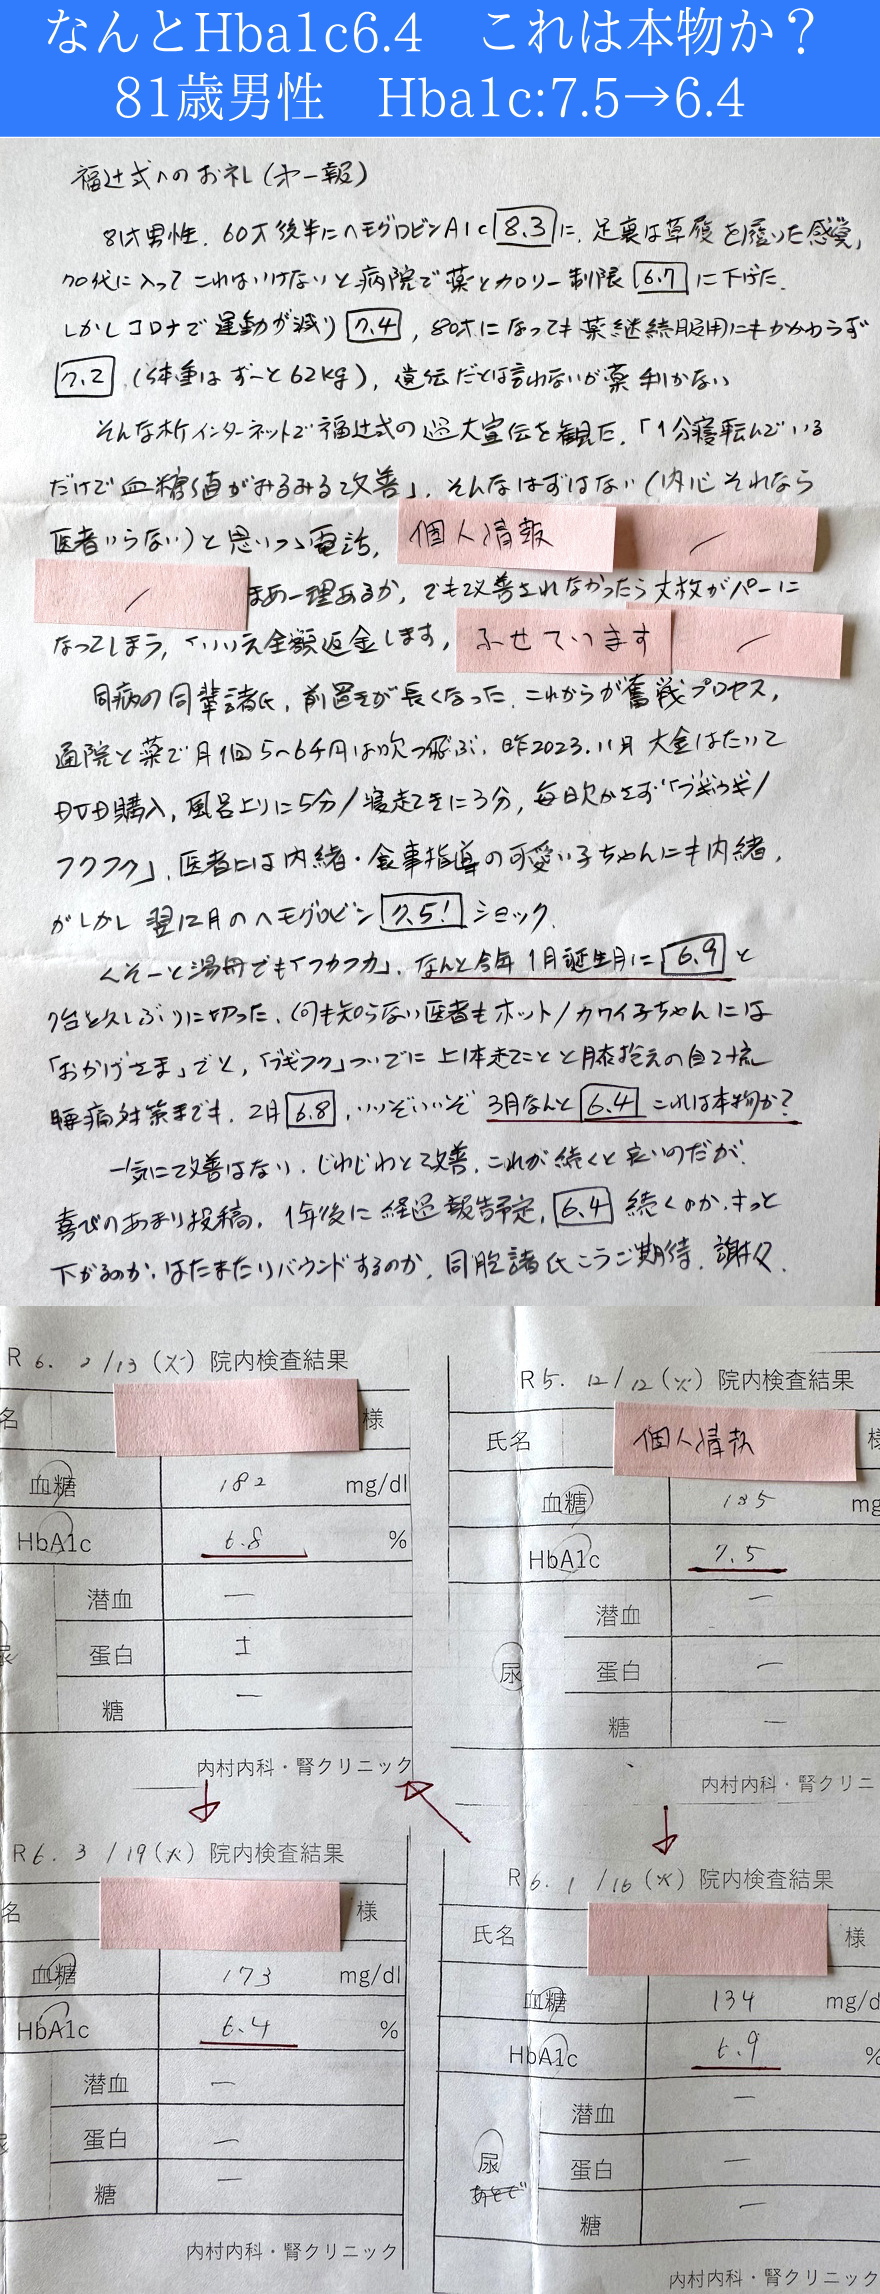 なんとHba1c6.4　これは本物か？
81歳男性　Hba1c:7.5→6.4
福辻式へのお礼(第一報)
81才男性、60才後半にヘモグロビンA1c 8.3 に、足裏は草履を履いた感覚、
70代に入ってこれはいけないと病院で薬とカロリー制限 6.7 に下げた。
しかしコロナで運動が減り 7.4 、80才になっても薬継続服用にもかかわらず
7.2 (体重はずーと62kg)、遺伝だとは言わないが薬利かない
そんな折インターネットで福辻式の過大宣伝を観た、「1分寝転んでいる
だけで血糖値がみるみる改善」、そんなはずはない(内心それなら
医者いらない)と思いつつ電話、 個人情報
まあ一理あるか、でも改善されなかったら大枚がパーに
なってしまう、いいえ全額返金します、 ふせています
同病の同輩諸氏、前置きが長くなった、これからが奮戦プロセス、
通院と薬で月1回5〜6千円は吹っ飛ぶ、昨2023.11月 大金はたいて
DVD購入、風呂上りに5分/寝起きに3分、毎日欠かさず「ブギウギ/
フクフク」、医者には内緒・食事指導の可愛い子ちゃんにも内緒、
がしかし 翌12月のヘモグロビン 7.5! ショック、
くそーと湯舟でも「フカフカ」、なんと今年1月誕生月に 6.9 と
7台を久しぶりに切った、何も知らない医者もホット/カワイ子ちゃんには
「おかげさま」でと、「ブギフク」ついでに上体起こしと膝抱えの自己流
腰痛対策までも、2月 6.8 、いいぞいいぞ 3月なんと 6.4 これは本物か?
一気にて改善はない、じわじわと改善、これが続くと良いのだが、
喜びのあまり投稿、1年後に経過報告予定、 6.4 続くのか、もっと
下がるのか、はたまたリバウンドするのか、同胞諸氏こうご期待、謝々、
R6. 2/13(火) 院内検査結果
名 様
血糖 182 mg/dl
HbA1c 6.8 %
潜血 ー
尿 蛋白 ±
糖 ー
内村内科・腎クリニック
R5. 12/12(火) 院内検査結果
氏名 個人情報 様
血糖 135 mg
HbA1c 7.5
潜血 ー
尿 蛋白 ー
糖 ー
内村内科・腎クリニ
R6. 3/19(火) 院内検査結果
名 様
血糖 173 mg/dl
HbA1c 6.4 %
潜血 ー
尿 蛋白 ー
糖 ー
内村内科・腎クリニック
R6. 1/16(火) 院内検査結果
氏名 様
血糖 134 mg/d
HbA1c 6.9 %
潜血 ー
尿 蛋白 ー
あとで
糖 ー
内村内科・腎クリニック